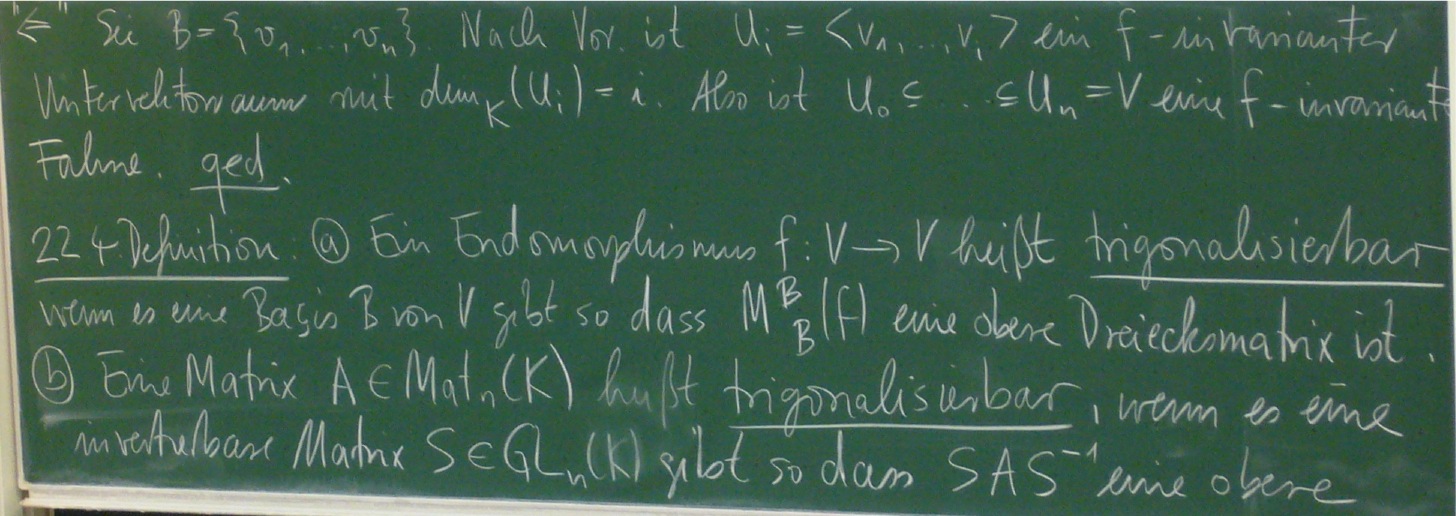 "⇐" Sei B={v₁,...,vₙ}. Nach Vor. ist Uᵢ = <v₁,...,vᵢ> ein f-invarianter
Untervektorraum mit dim_K(Uᵢ)=i. Also ist U₀ ⊆ ... ⊆ Uₙ=V eine f-invariante
Fahne. qed.
22.4. Definition: ⓐ Ein Endomorphismus f: V → V heißt trigonalisierbar
wenn es eine Basis B von V gibt so dass M^B_B(f) eine obere Dreiecksmatrix ist.
ⓑ Eine Matrix A ∈ Matₙ(K) heißt trigonalisierbar, wenn es eine
invertierbare Matrix S ∈ GLₙ(K) gibt so dass SAS⁻¹ eine obere